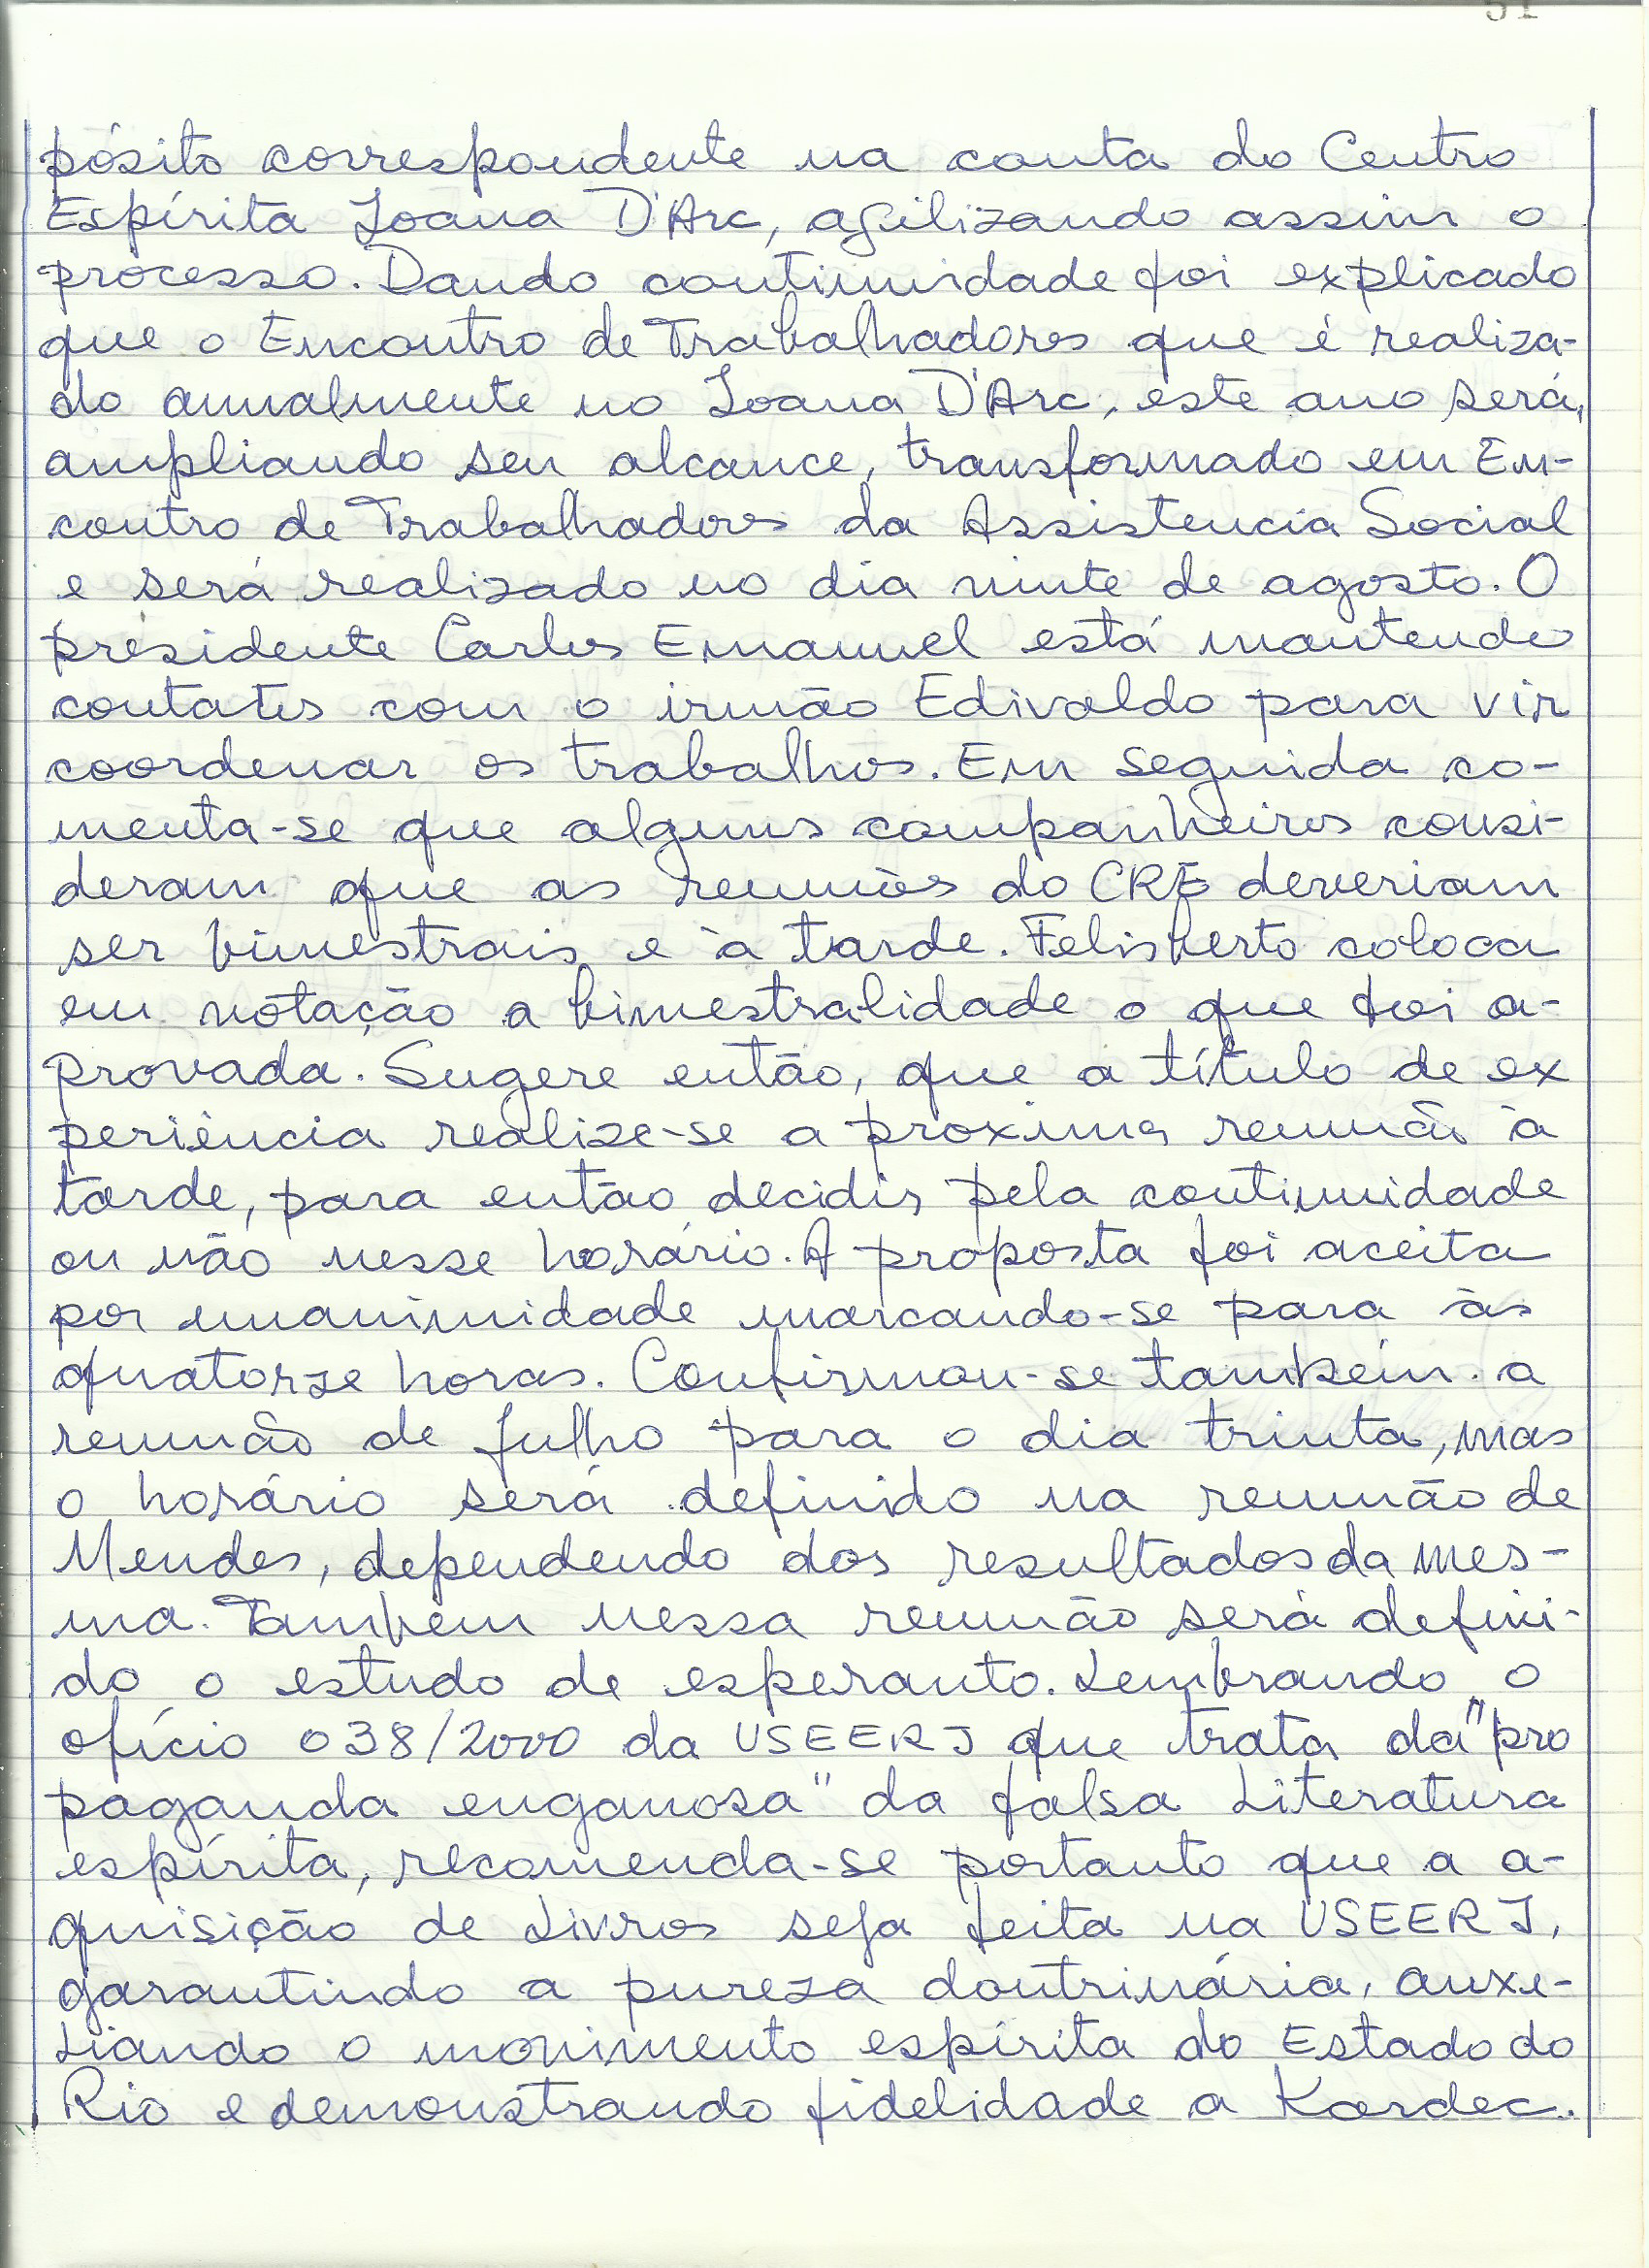 pósito correspondente na conta do Centro
Espírita Joana D'Arc, agilizando assim o
processo. Dando continuidade foi explicado
que o Encontro de Trabalhadores que é realiza-
do anualmente no Joana D'Arc, este ano será,
ampliando seu alcance, transformado em En-
contro de Trabalhadores da Assistencia Social
e será realizado no dia vinte de agosto. O
presidente Carlos Emanuel está mantendo
contatos com o irmão Edivaldo para vir
coordenar os trabalhos. Em seguida co-
menta-se que alguns companheiros consi-
deram que as reuniões do CRE deveriam
ser bimestrais e à tarde. Felisberto coloca
em votação a bimestralidade o que foi a-
provada. Sugere então, que a título de ex
periência realize-se a próxima reunião à
tarde, para então decidir pela continuidade
ou não nesse horário. A proposta foi aceita
por unanimidade marcando-se para às
quatorze horas. Confirmou-se também a
reunião de julho para o dia trinta, mas
o horário será definido na reunião de
Mendes, dependendo dos resultados da mes-
ma. Também nessa reunião será defini-
do o estudo de esperanto. Lembrando o
ofício 038/2000 da USEERJ que trata da "pro
paganda enganosa" da falsa Literatura
espírita, recomenda-se portanto que a a-
quisição de Livros seja feita na USEERJ,
garantindo a pureza doutrinária, auxi-
liando o movimento espírita do Estado do
Rio e demonstrando fidelidade a Kardec.